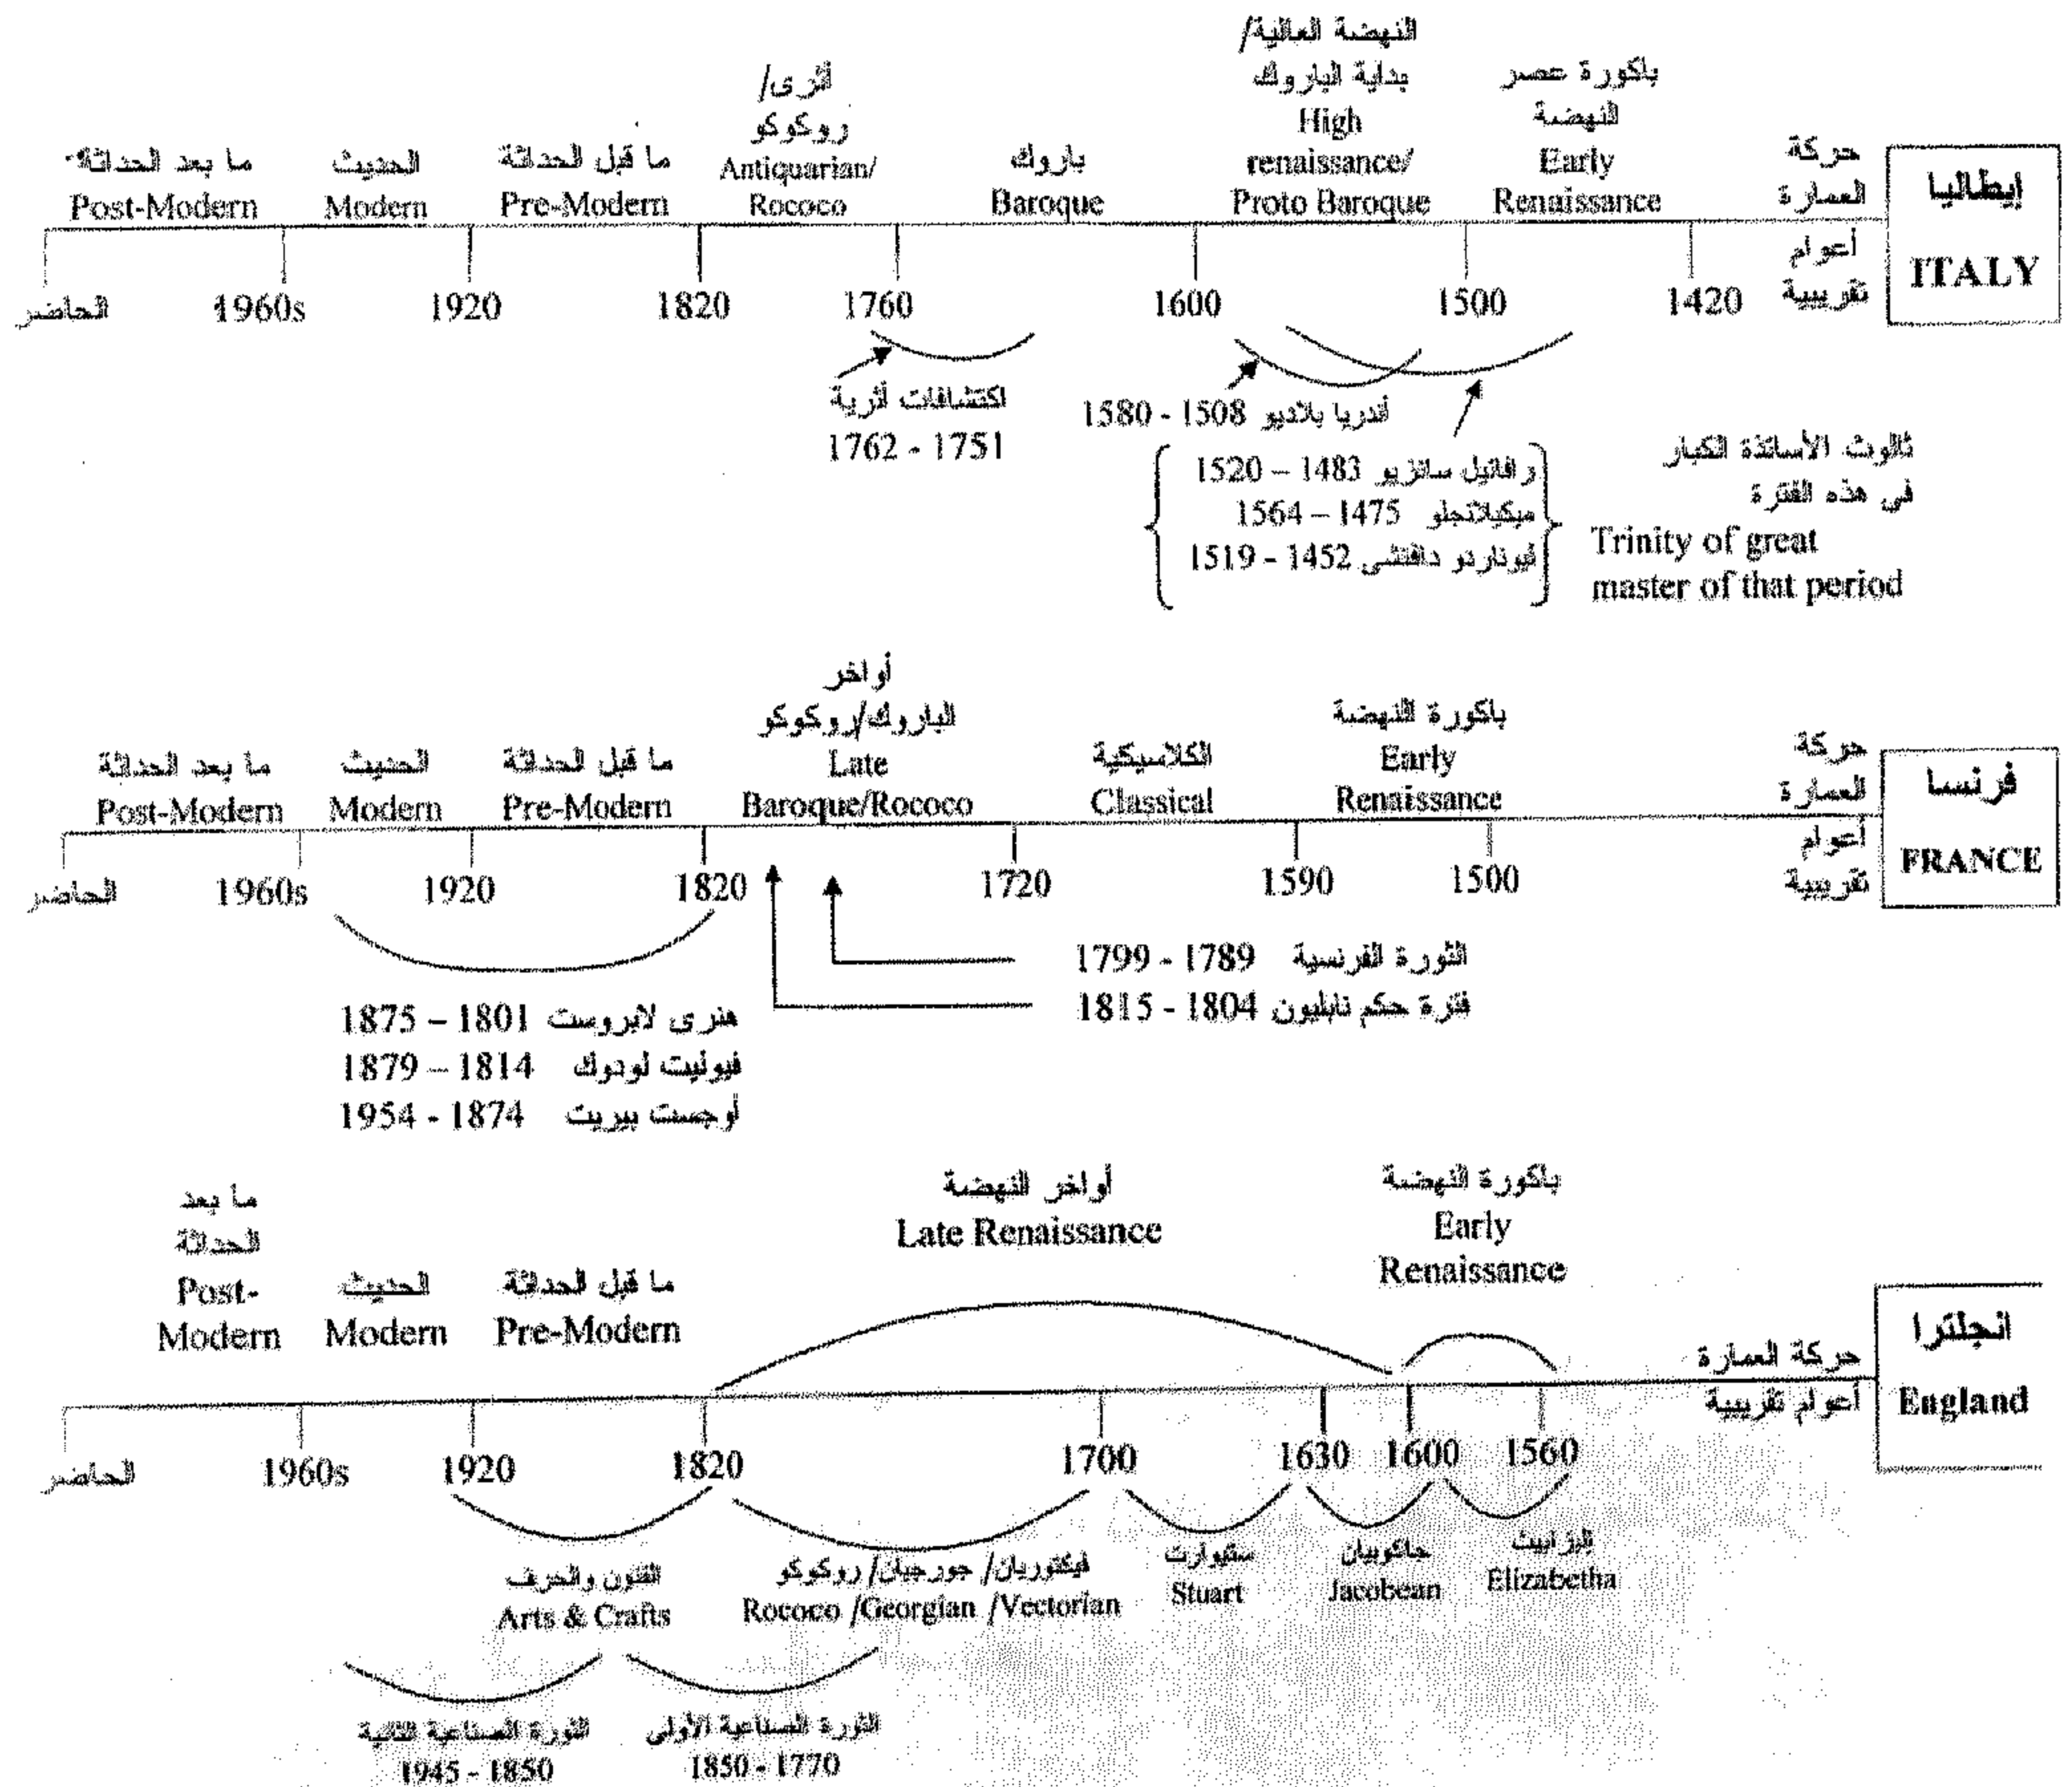 إيطاليا
ITALY
حركة
العمارة
أعوام
تقريبية
باكورة عصر
النهضة
Early
Renaissance
النهضة العالية/
بداية الباروك
High
renaissance/
Proto Baroque
باروك
Baroque
أثرى/
روكوكو
Antiquarian/
Rococo
ما قبل الحداثة
Pre-Modern
الحديث
Modern
ما بعد الحداثة
Post-Modern
1420
1500
1600
1760
1820
1920
1960s
الحاضر
اكتشافات أثرية
1751 - 1762
أندريا بلاديو 1508 - 1580
رافائيل سانزيو 1483 – 1520
ميكيلانجلو 1475 – 1564
ليوناردو دافنشى 1452 - 1519
ثالوث الأساتذة الكبار
في هذه الفترة
Trinity of great
master of that period
فرنسا
FRANCE
حركة
العمارة
أعوام
تقريبية
باكورة النهضة
Early
Renaissance
الكلاسيكية
Classical
أواخر
الباروك/روكوكو
Late
Baroque/Rococo
ما قبل الحداثة
Pre-Modern
الحديث
Modern
ما بعد الحداثة
Post-Modern
1500
1590
1720
1820
1920
1960s
الحاضر
الثورة الفرنسية 1789 - 1799
فترة حكم نابليون 1804 - 1815
هنرى لابروست 1801 – 1875
فيوليت لودوك 1814 – 1879
أوجست بيريت 1874 - 1954
انجلترا
England
حركة العمارة
أعوام تقريبية
باكورة النهضة
Early
Renaissance
أواخر النهضة
Late Renaissance
ما قبل الحداثة
Pre-Modern
الحديث
Modern
ما بعد
الحداثة
Post-
Modern
1560
1600
1630
1700
1820
1920
1960s
الحاضر
اليزابيث
Elizabetha
جاكوبيان
Jacobean
ستيوارت
Stuart
فيكتوريان/ جورجيان/ روكوكو
Rococo /Georgian /Vectorian
الفنون والحرف
Arts & Crafts
الثورة الصناعية الأولى
1770 - 1850
الثورة الصناعية الثانية
1850 - 1945